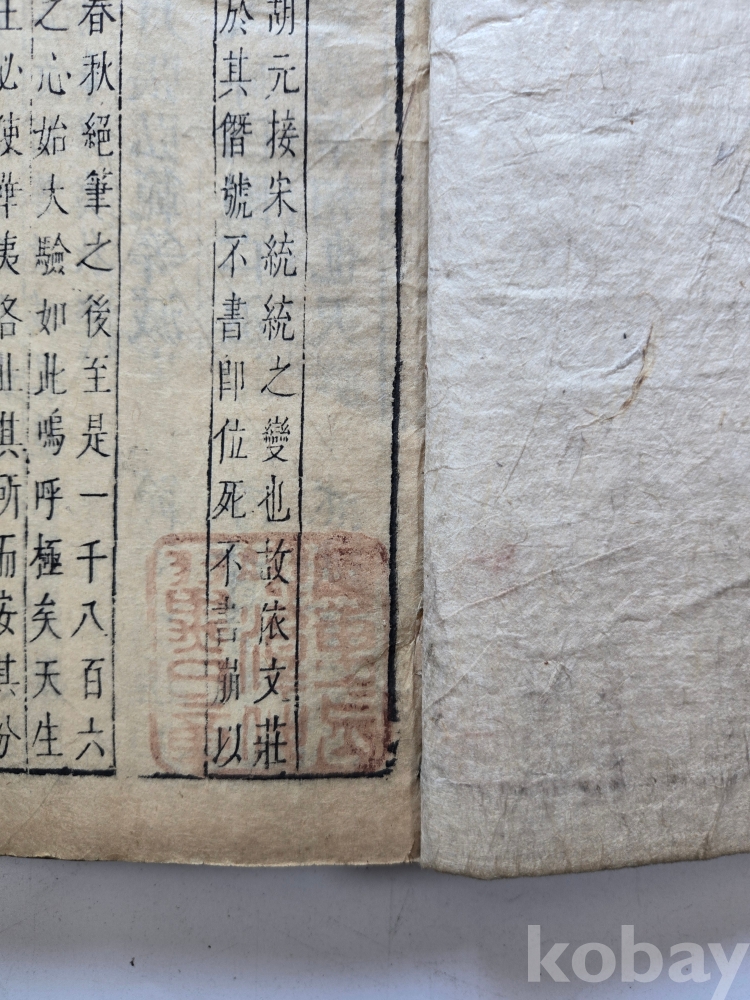 胡元接宋統統之變也故依文莊
於其僭號不書即位死不書崩以
春秋絕筆之後至是一千八百六
之心始大驗如此嗚呼極矣天生
必使華夷各止其所而安其分
kobay